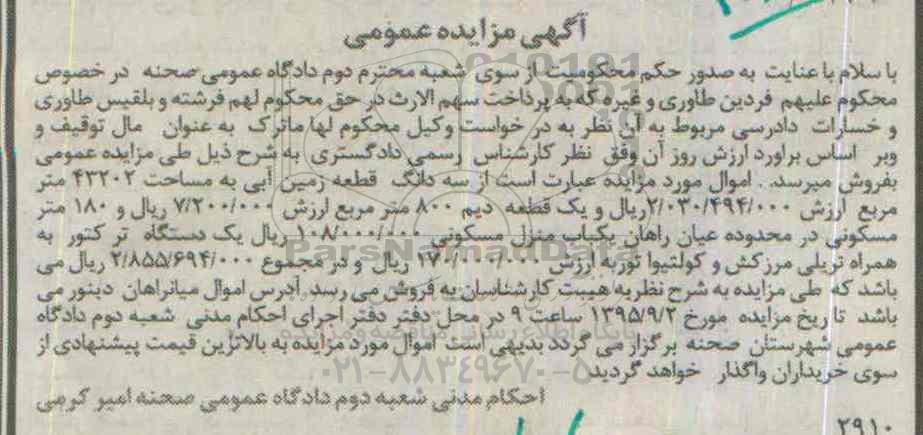 آگهی مزایده عمومی
با سلام با عنایت به صدور حکم محکومیت از سوی شعبه محترم دوم دادگاه عمومی صحنه در خصوص
محکوم علیهم فردین طاوری و غیره که به پرداخت سهم الارث در حق محکوم لهم فرشته و بلقیس طاوری
و خسارات دادرسی مربوط به آن نظر به در خواست وکیل محکوم لها ماترک به عنوان مال توقیف و
وبر اساس براورد ارزش روز آن وفق نظر کارشناس رسمی دادگستری به شرح ذیل طی مزایده عمومی
بفروش میرسد. . اموال مورد مزایده عبارت است از سه دانگ قطعه زمین آبی به مساحت ۴۳۲۰۲ متر
مربع ارزش ۲/۰۳۰/۴۹۴/۰۰۰ریال و یک قطعه دیم ۸۰۰ متر مربع ارزش ۷/۲۰۰/۰۰۰ ریال و ۱۸۰ متر
مسکونی در محدوده عیان راهان یکباب منزل مسکونی ۱۰۸/۰۰۰/۰۰۰ ریال یک دستگاه تر کتور به
همراه تریلی مرزکش و کولتیوا توربه ارزش ۱۷۰/۰۰۰/۰۰۰ ریال و در مجموع ۲/۸۵۵/۶۹۴/۰۰۰ ریال می
باشد که طی مزایده به شرح نظریه هیبت کارشناسان به فروش می رسد. آدرس اموال میانراهان دینور می
باشد تا ریخ مزایده مورخ ۱۳۹۵/۹/۲ ساعت ۹ در محل دفتر دفتر اجرای احکام مدنی شعبه دوم دادگاه
عمومی شهرستان صحنه برگزار می گردد بدیهی است اموال مورد مزایده به بالاترین قیمت پیشنهادی از
سوی خریداران واگذار خواهد گردید
احکام مدنی شعبه دوم دادگاه عمومی صحنه امیر کرمی
۲۹۱۰
ParsNamadData
۰۲۱-۸۸۳۴۹۶۷۰-۵